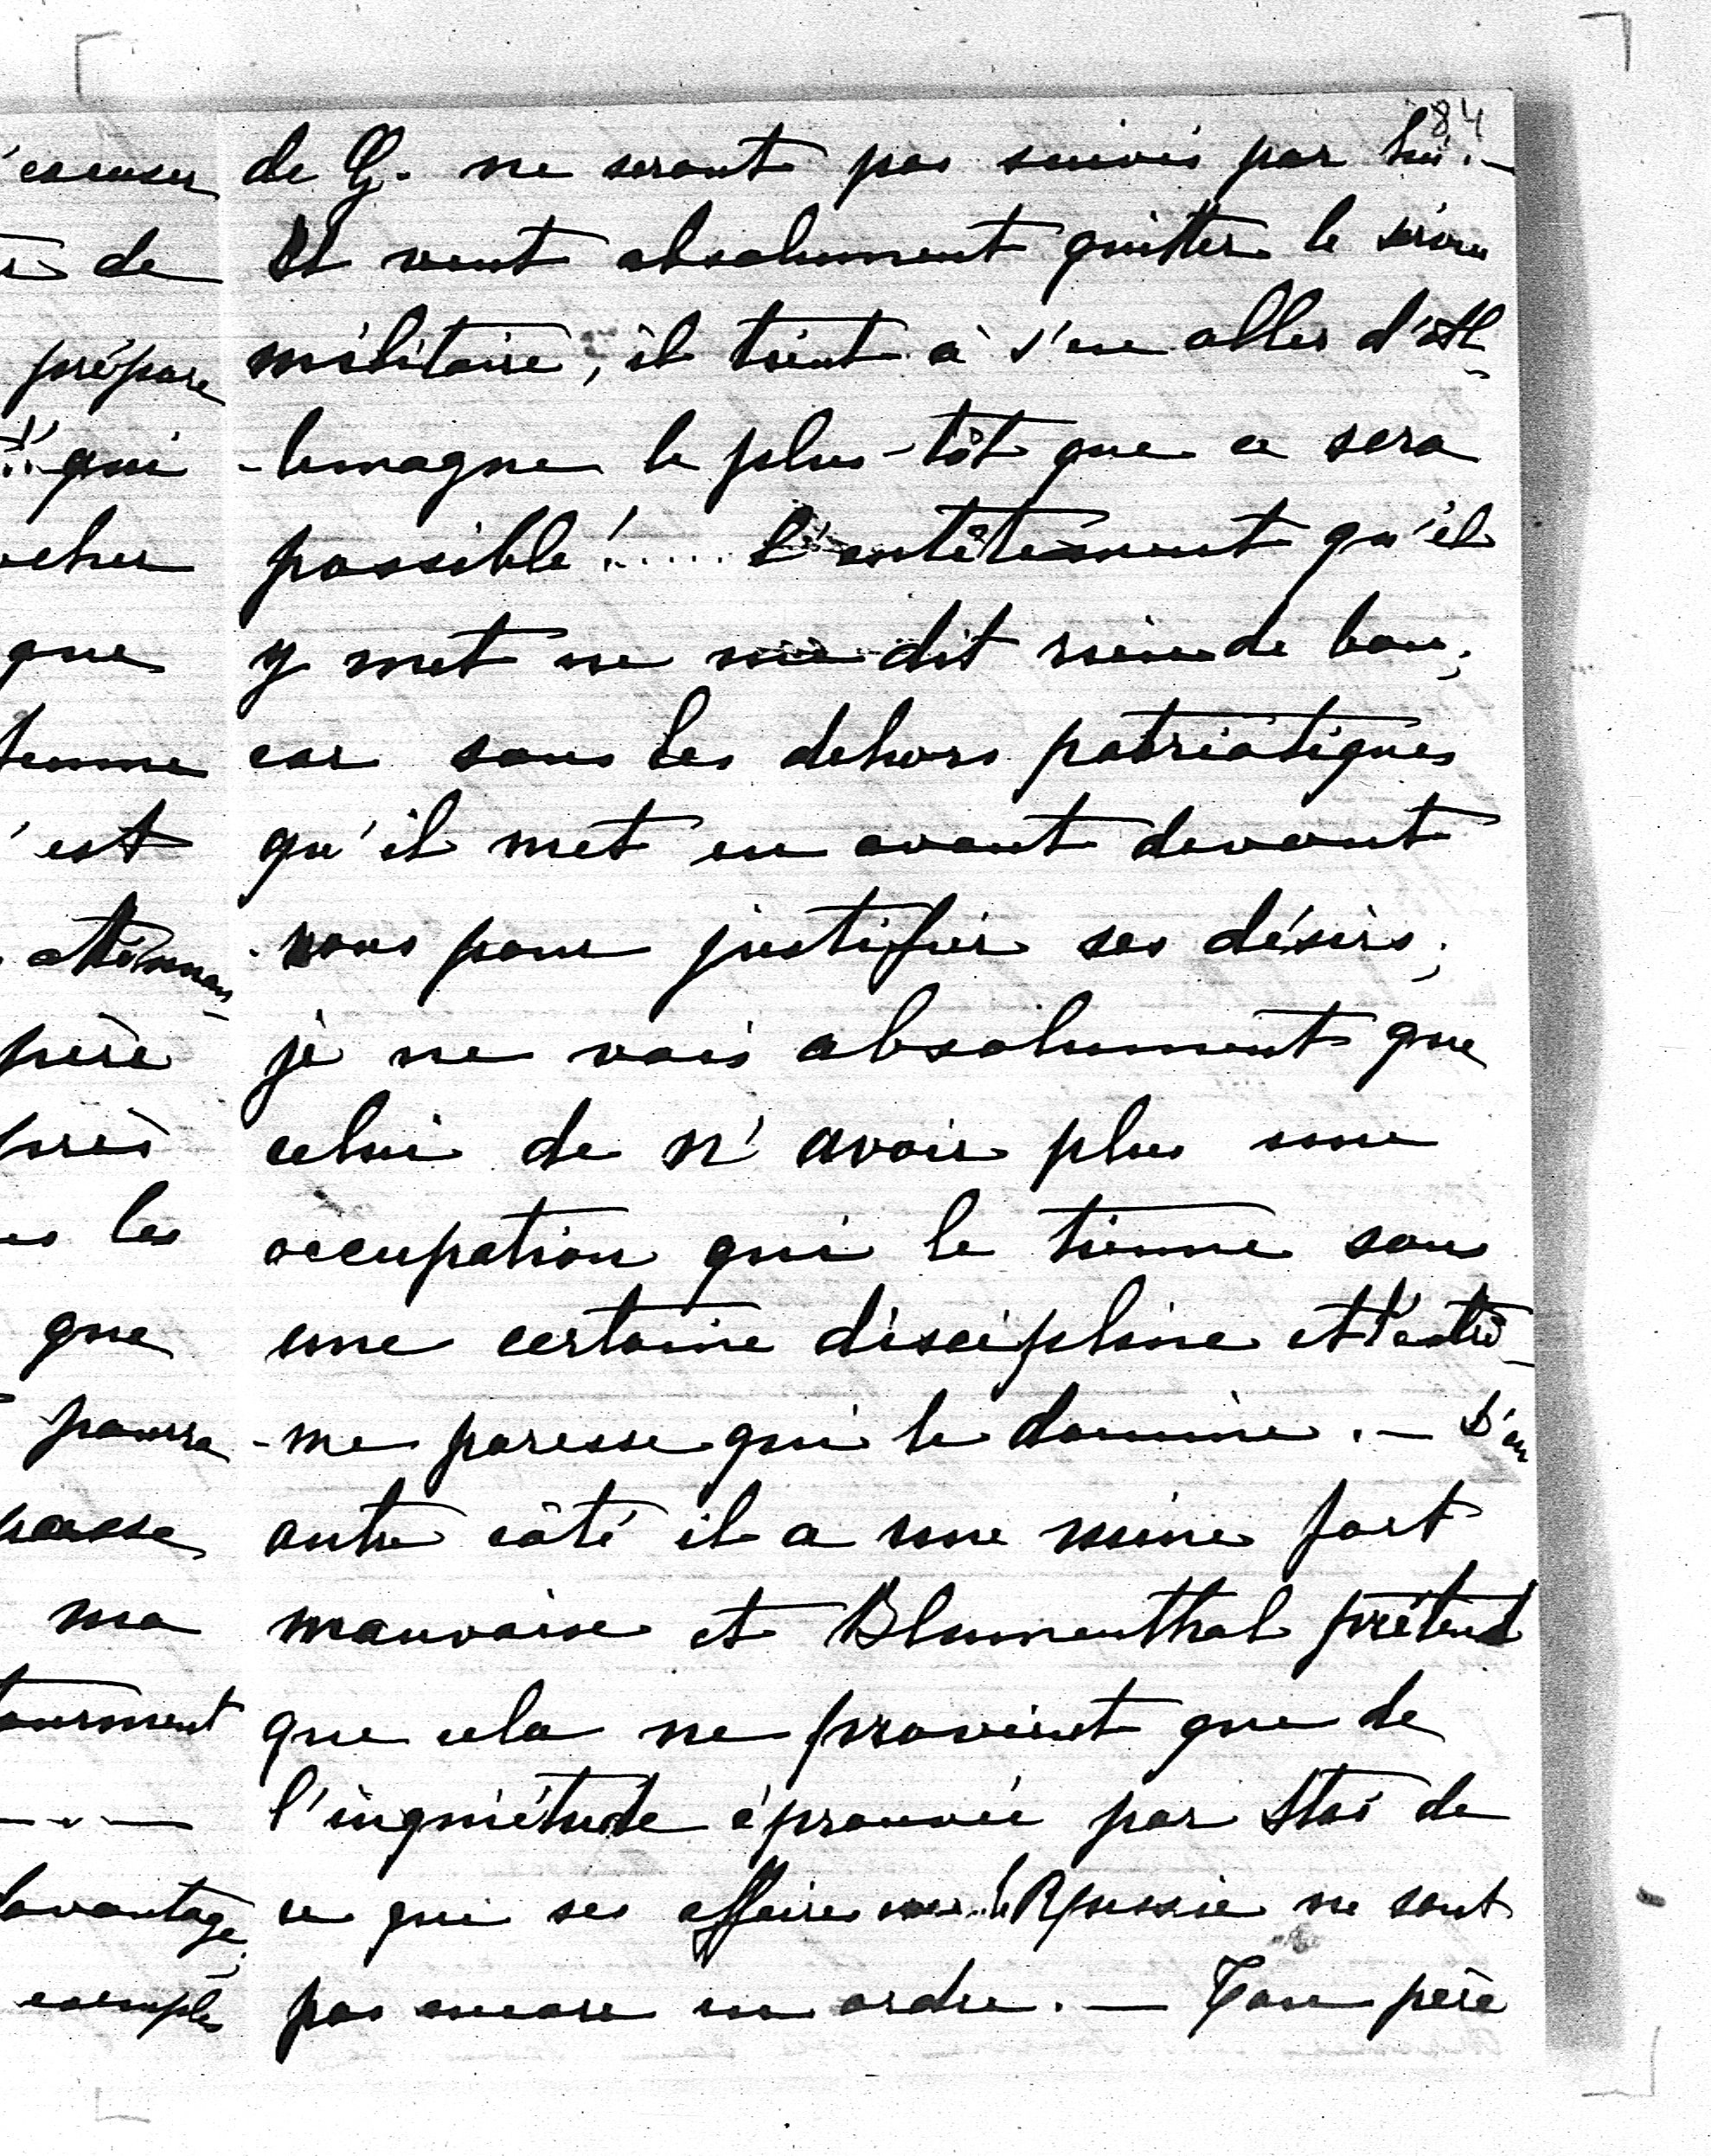 84
de G. ne seront pas suivis par lui. —
Il veut absolument quitter le service
militaire, il tient à s'en aller d'Al-
-lemagne le plus-tôt que ce sera
possible!..... L'entêtement qu'il
y met ne me dit rien de bon;
car sous les dehors patriotiques
qu'il met en avant devant
nous pour justifier ses désirs;
je ne vois absolument que
celui de n'avoir plus une
occupation qui le tienne sous
une certaine discipline et l'extrê-
-me paresse qui le domine. — D'un
autre côté il a une mine fort
mauvaise et Blumenthal prétend
que cela ne provient que de
l'inquiétude éprouvée par Stas de
ce qui ses affaires Russie ne sont
pas encore en ordre. — Ton père
excuser
de
prépare
qui
que
'est
père
près
les
que
pourra
ma
davantage;
exemples